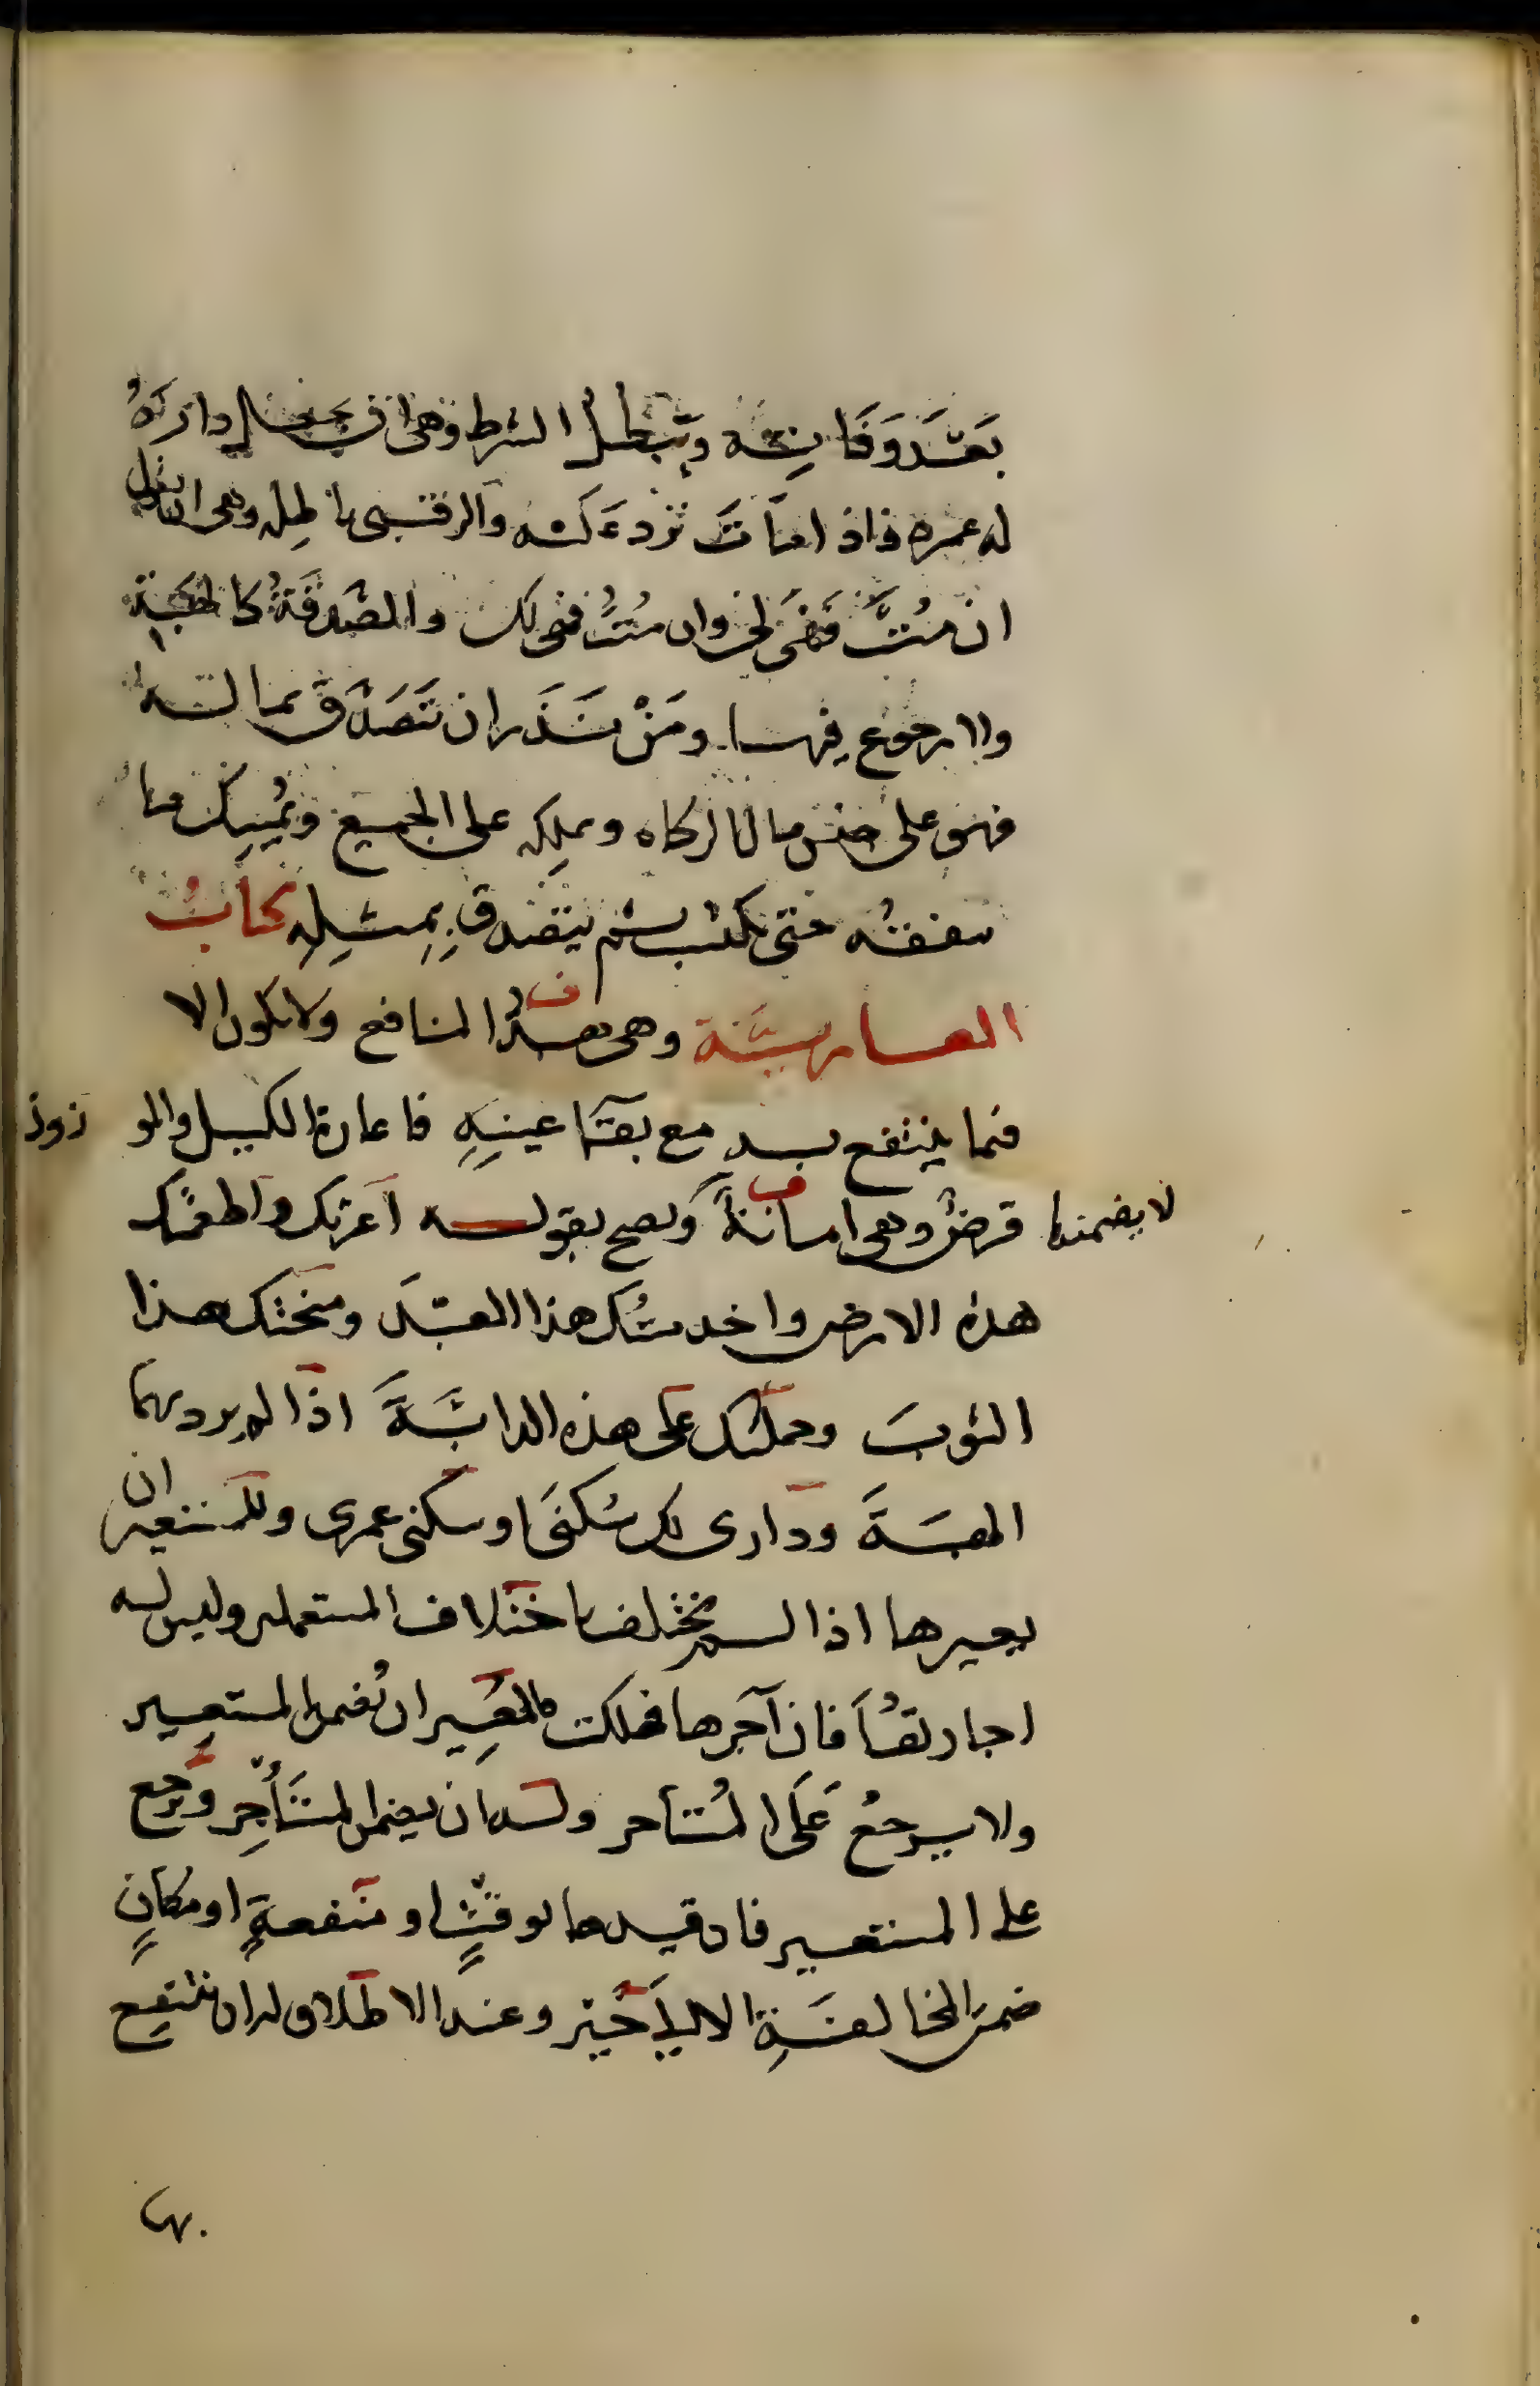 بَعْدَ وَفَاتِهِ ويَبْطُلُ الشرط وهى ان يجعل دارَهُ
له عمره فاذا مَاتَ تردءَ لَه والرقبى باطله وهى ان يقول
ان مُتَّ فَهى لى وان مُتُّ فهى لك والصَّدقَةُ كالهِبَة
ولا رجوع فيها ومَنْ نَذَر ان يَتَصَدَّقَ بماله
فهو على جنس مال الزكاه وبملكه على الجميع ويُمسِك ما
ينفقُه حتى يكتسب ثم يتصدق بِمِثلِهِ كتابُ
العاريَّة وهى هبَةُ المنافع ولا يكون الا
فيما ينتفع به مع بقآ عينِهِ فاعارة المكيل والمو زون
قرضٌ وهى امانَةٌ وتصح بقوله اعرتك واطعمتُك
لا يضمنها
هذه الارض واخدمتُك هذا العبْدَ ومنحتك هذا
الثوبَ وحملتك على هذه الدابَّةَ اذا لم يرد بها
الهبَةَ ودارى لك سُكنَى او سكنى عمرى وللمستعير ان
يعيرها اذا لم يختلف باختلاف المستعمل وليس له
اجارتهَا فان آجرها فهلكت فللمُعِير ان يُضمن المستعِير
ولا يرجعُ عَلَى المُستاجر وله ان يضمن المستَأْجِر ويَرجع
على المستعير فان قيدها بوقتٍ او منفعةٍ او مكانٍ
ضمن بالمخالفَةِ الا الى خير وعند الاطلاق له ان ينتفع
بها